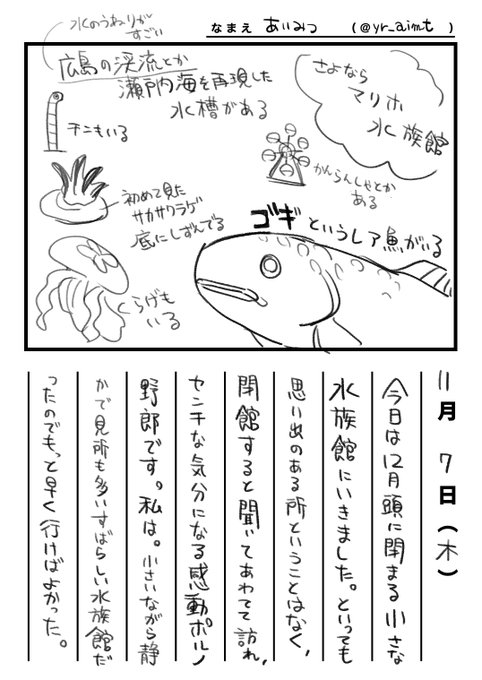 なまえ あいみつ (@yr_aimt)
水のうねりが
すごい
広島の渓流とか
瀬戸内海を再現した
水槽がある
チンもいる
初めて見た
サカサクラゲ
底にしずんでる
くらげも
いる
さよなら
マリホ
水族館
かんらんしゃとか
ある
ゴギというレア魚がいる
11月7日(木)
今日は12月頭に閉まる小さな
水族館にいきました。といっても
思い出のある所ということはなく、
閉館すると聞いてあわてて訪れ、
センチな気分になる感動ポルノ
野郎です。私は。小さいながら静
かで見所も多いすばらしい水族館だ
ったのでもっと早く行けばよかった。